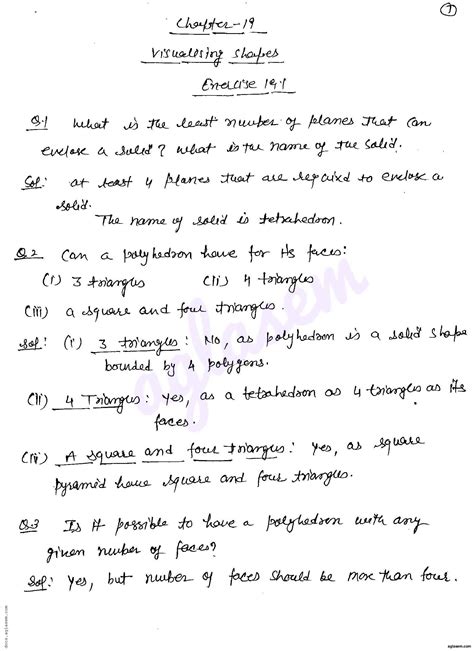 1
Chapter-19
Visualising Shapes
Exercise 19.1
Q.1 What is the least number of planes that can
enclose a solid? What is the name of the solid.
Sol: at least 4 planes that are required to enclose a
solid.
The name of solid is tetrahedron.
Q.2 Can a polyhedron have for its faces:
(i) 3 triangles (ii) 4 triangles
(iii) a square and four triangles.
Sol: (i) 3 triangles: No, as polyhedron is a solid shape
bounded by 4 polygons.
(ii) 4 Triangles: Yes, as a tetrahedron as 4 triangles as its
faces.
(iii) A square and four triangles: Yes, as square
pyramid have square and four triangles.
Q.3 Is it possible to have a polyhedron with any
given number of faces?
Sol: Yes, but number of faces should be more than four.
aglasem
docs.aglasem.com
aglasem.com